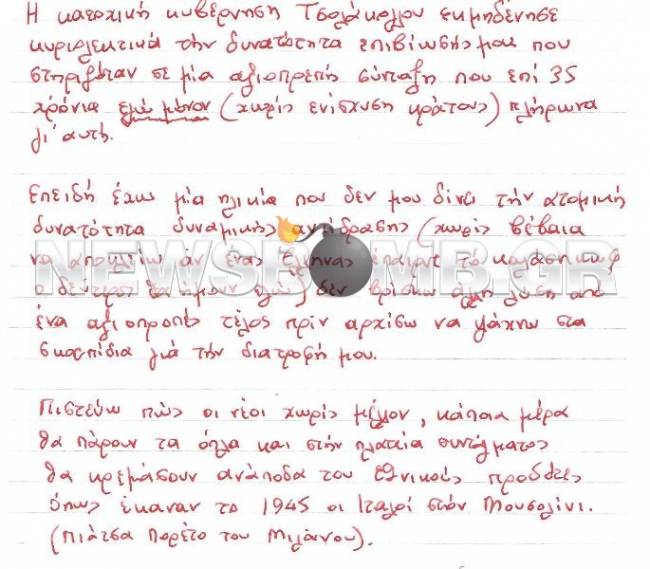 Η κατοχική κυβέρνηση Τσολάκογλου εκμηδένησε
κυριολεκτικά την δυνατότητα επιβίωσής μου που
στηριζόταν σε μία αξιοπρεπή σύνταξη που επί 35
χρόνια εγώ μόνον (χωρίς ενίσχυση κράτους) πλήρωνα
γι' αυτή.
Επειδή έχω μία ηλικία που δεν μου δίνει την ατομική
δυνατότητα δυναμικής αντίδρασης (χωρίς βέβαια
να αποκλείω αν ένας Έλληνας έπαιρνε το καλάσνικωφ
ο δεύτερος θα ήμουν εγώ) δεν βρίσκω άλλη λύση από
ένα αξιοπρεπές τέλος πριν αρχίσω να ψάχνω στα
σκουπίδια για την διατροφή μου.
NEWSBOMB.GR
Πιστεύω πως οι νέοι χωρίς μέλλον, κάποια μέρα
θα πάρουν τα όπλα και στην πλατεία συντάγματος
θα κρεμάσουν ανάποδα του εθνικούς προδότες
όπως έκαναν το 1945 οι Ιταλοί στον Μουσολίνι.
(πιάτσα Πορέτο του Μιλάνου).